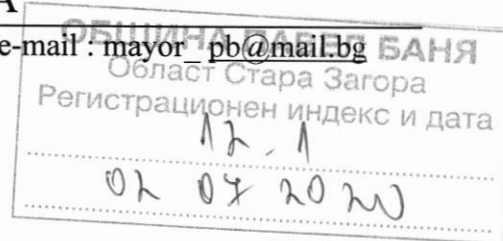 А
e-mail : mayor_ pb@mail.bg
ОБЩИНА ПАВЕЛ БАНЯ
Област Стара Загора
Регистрационен индекс и дата
12. 1
02 07 2020